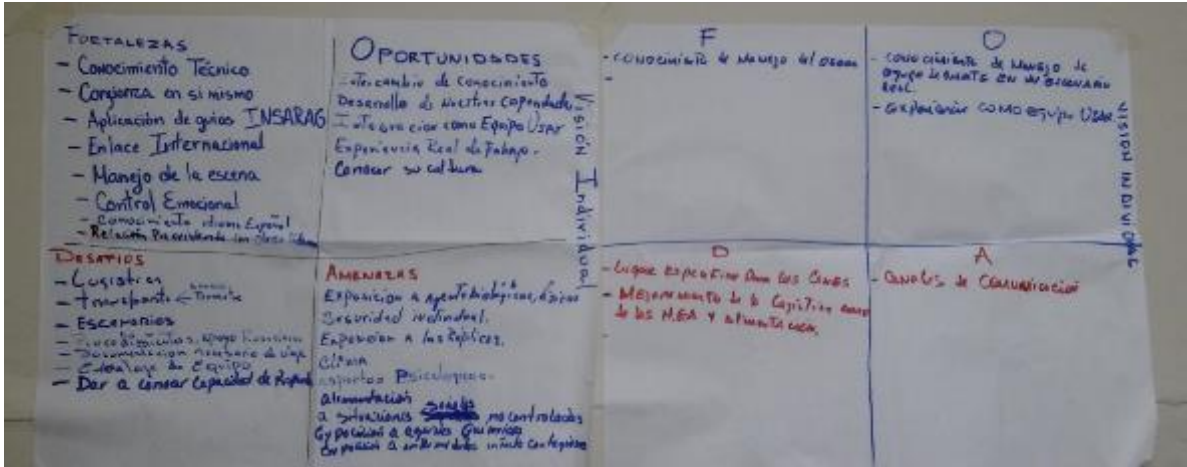 FORTALEZAS
- Conocimiento Técnico
- Confianza en si mismo
- Aplicación de guias INSARAG
- Enlace Internacional
- Manejo de la escena
- Control Emocional
- Conocimiento idioma Español
- Relación
OPORTUNIDADES
Intercambio de conocimiento
Desarrollo de nuestras
Integracion como Equipo Usar
Experiencia Real de Trabajo.
Conocer su cultura
Visión Individual
DESAFIOS
- Logistica
- transporte
- Escenarios
- Documentacion necesario de viaje
- Embalaje de Equipo
- Dar a conocer Capacidad de
AMENAZAS
Exposicion a
Seguridad individual.
Exposicion a las Replicas.
Clima
aspectos Psicologicos.
alimentación
a situaciones no controladas
Exposicion a agentes Quimicos
Exposicion a enfermedades infecto contagiosas
F
- CONOCIMIENTO de Manejo del
-
O
- CONOCIMIENTO de Manejo de
equipo EN UN ESCENARIO
REAL.
- experiencia COMO equipo USAR
VISION INDIVIDUAL
D
- Lugar Especifico Para los Canes
- Mejoramiento de la Logistica
de los Y alimentacion,
A
- CANALES de COMUNICACIÓN